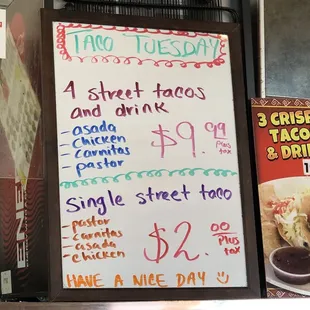 TACO TUESDAY
4 street tacos
and drink
- asada
- chicken
- carnitas
pastor
$9.99
Plus
tax
single street taco
- pastor
- carnitas
- asada
- chicken
$2.00
Plus
tax
HAVE A NICE DAY
3 CRISP
TACO
& DRI
ENE